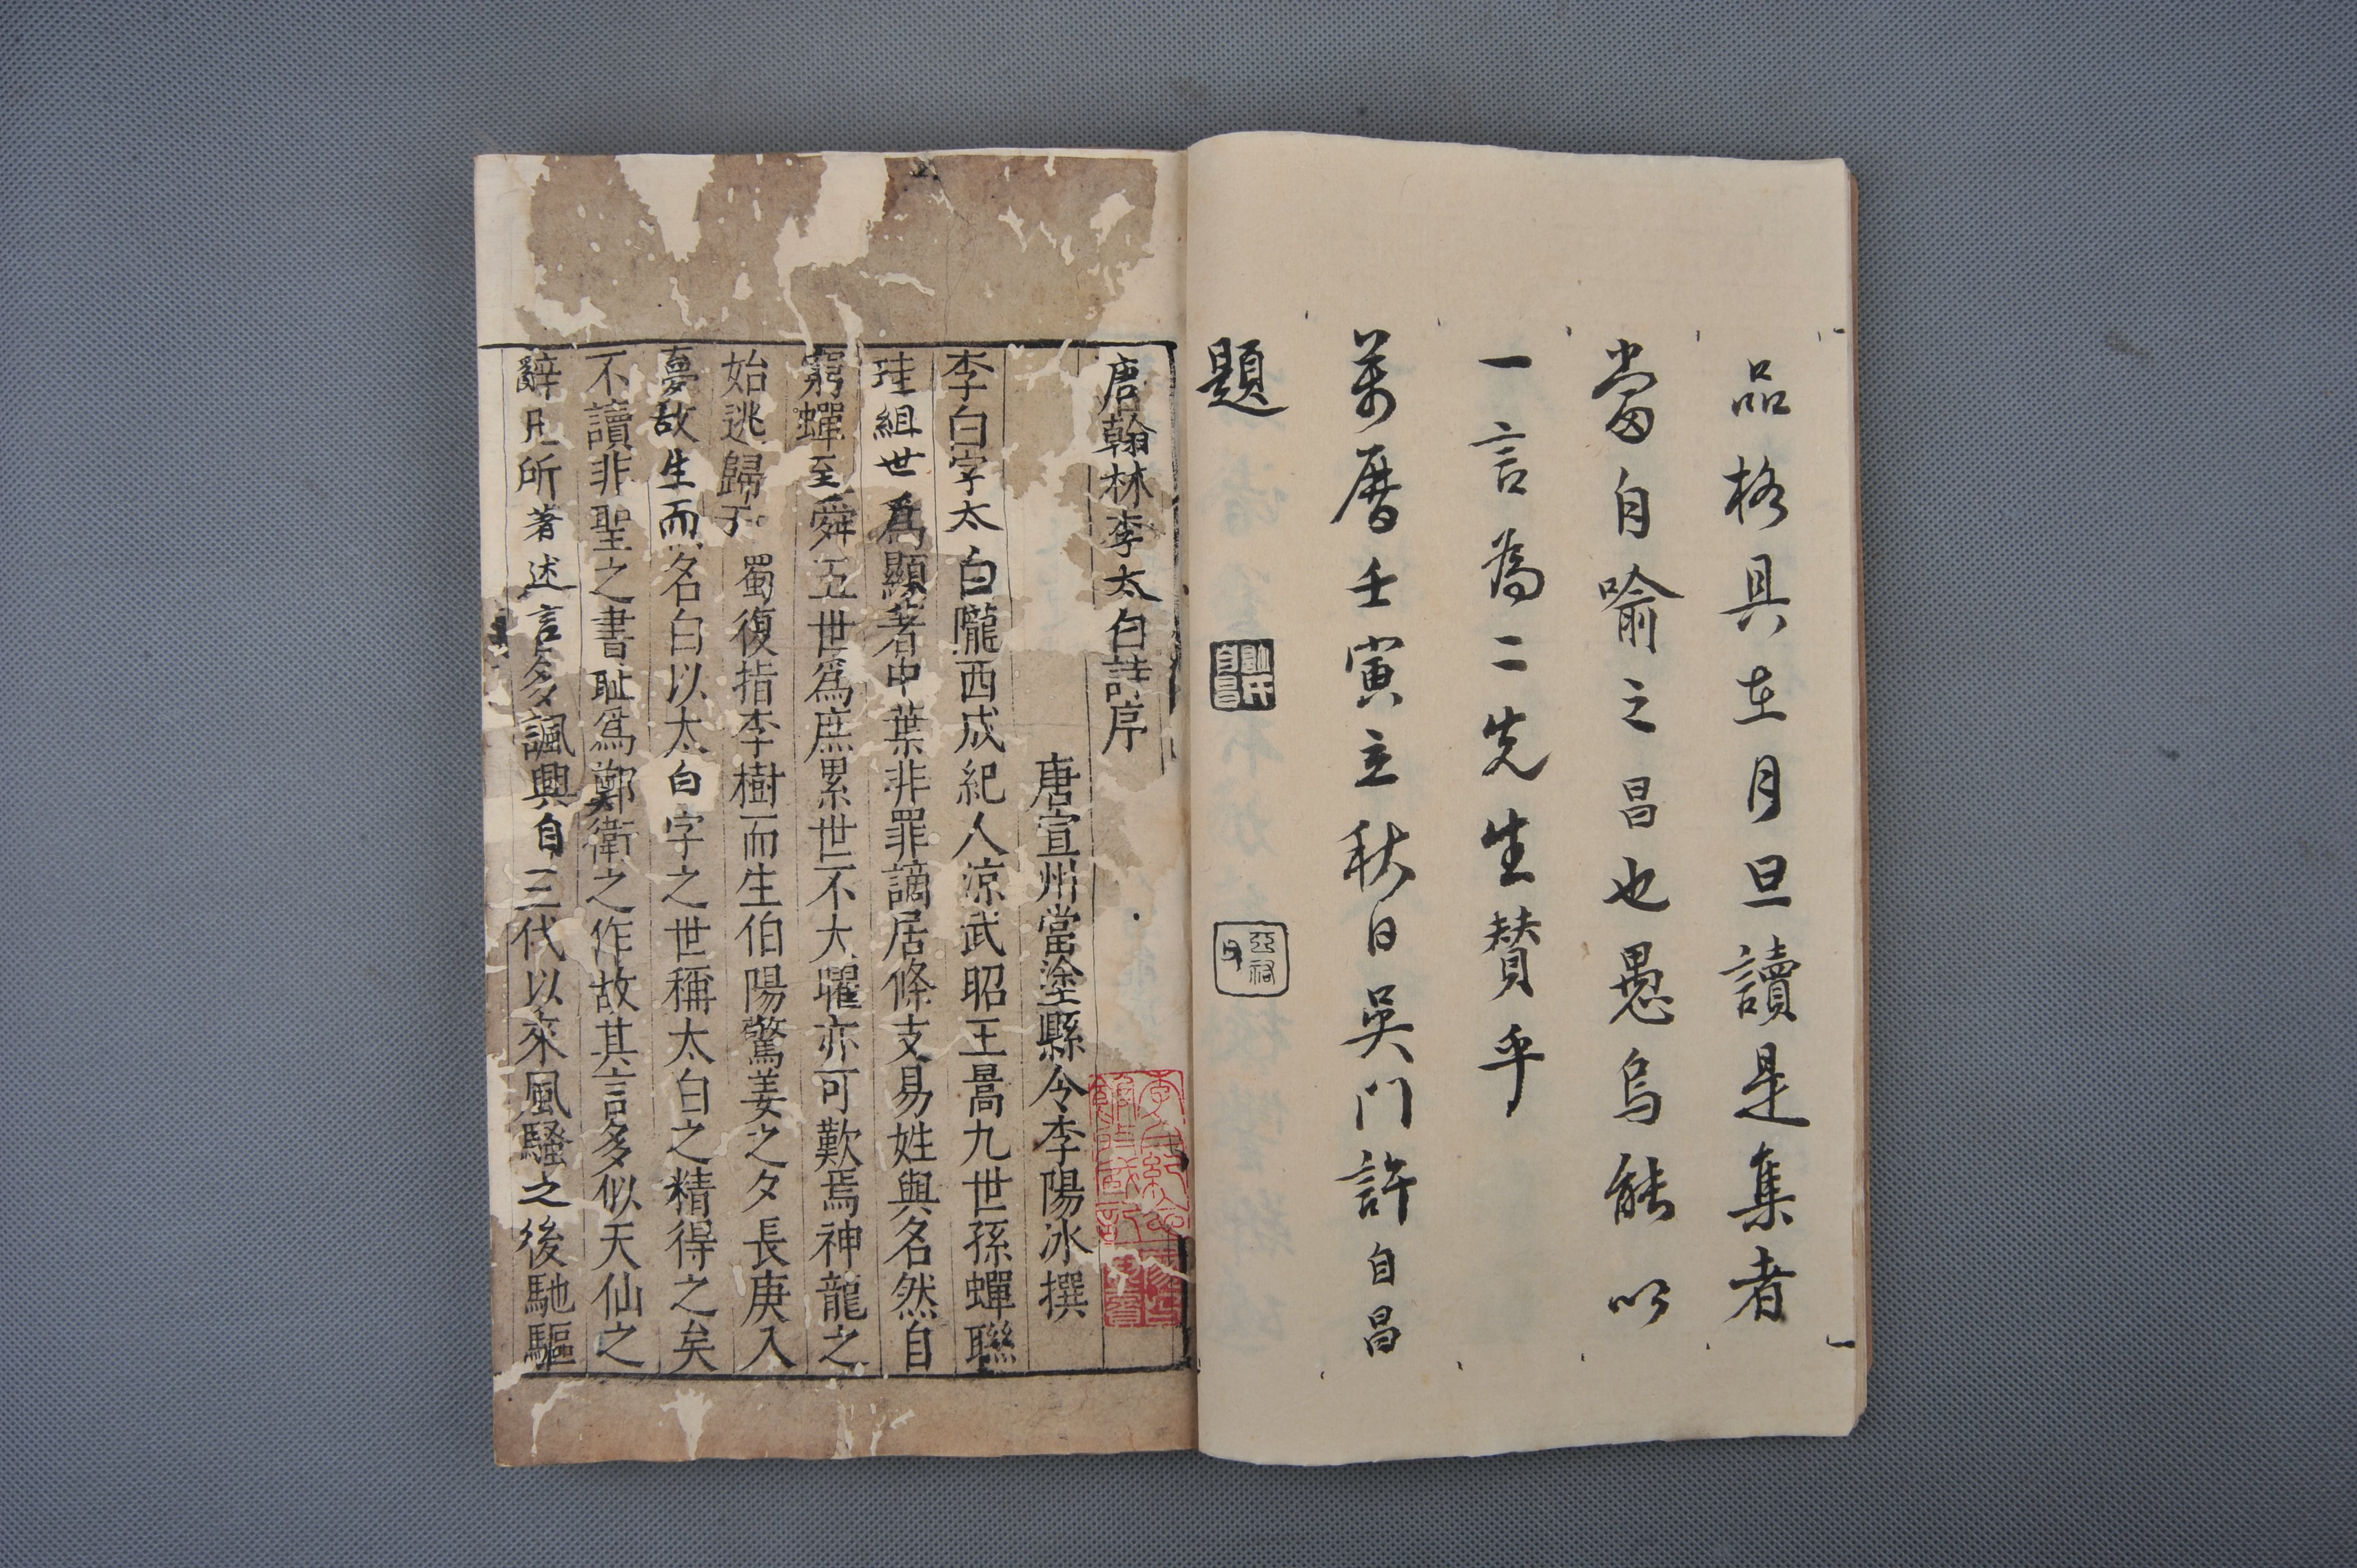 品格具在月旦讀是集者
當自喻之昌也愚烏能以
一言為二先生贊乎
萬曆壬寅立秋日吳門許自昌
題
唐翰林李太白詩序
唐宣州當塗縣令李陽冰撰
李白字太白隴西成紀人涼武昭王暠九世孫蟬聯
珪組世爲顯著中葉非罪謫居條支易姓與名然自
窮蟬至舜五世爲庶累世不大曜亦可歎焉神龍之
始逃歸于蜀復指李樹而生伯陽驚姜之夕長庚入
夢故生而名白以太白字之世稱太白之精得之矣
不讀非聖之書恥爲鄭衛之作故其言多似天仙之
辭凡所著述言多諷興自三代以來風騷之後馳驅